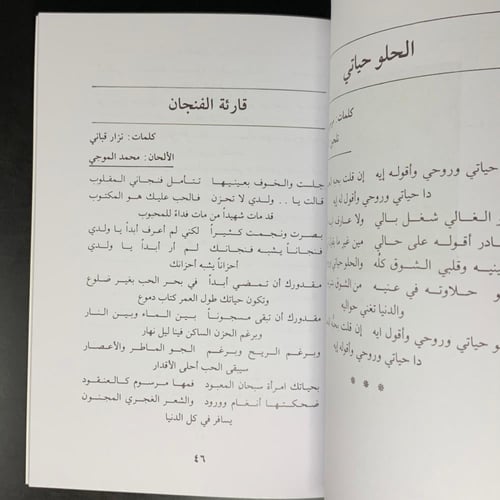 الحلو حياتي
كلمات:
حياتي وروحي وأقوله إيه إن قلت بحبه
دا حياتي وروحي وأقول له إيه
الغالي شغل بالي ولا عارف
أقوله على حالي مين غير ما
وقلبي الشوق كله والحلو حياتي
حلاوته في عنيه من الشوق
والدنيا تغني حواليه
حياتي وروحي وأقول ايه إن قلت بحبه
دا حياتي وروحي وأقوله إيه
* * *
قارئة الفنجان
كلمات: نزار قباني
الألحان: محمد الموجي
جلست والخوف بعينيها تتأمل فنجاني المقلوب
قالت يا .. ولدي لا تحزن فالحب عليك هو المكتوب
قد مات شهيداً من مات فداءً للمحبوب
بصرت ونجمت كثيراً لكني لم أعرف أبداً يا ولدي
فنجاناً يشبه فنجانك لم أر أبداً يا ولدي
أحزاناً يشبه أحزانك
مقدورك أن تمضي أبداً في بحر الحب بغير ضلوع
وتكون حياتك طول العمر كتاب دموع
مقدورك أن تبقى مسجوناً بين الماء وبين النار
وبرغم الحزن الساكن فينا ليل نهار
وبرغم الريح وبرغم الجو الماطر والأعصار
سيبقى الحب أحلى الأقدار
بحياتك امرأة سبحان المعبود فمها مرسوم كالعنقود
ضحكتها أنغام وورود والشعر الغجري المجنون
يسافر في كل الدنيا
٤٦